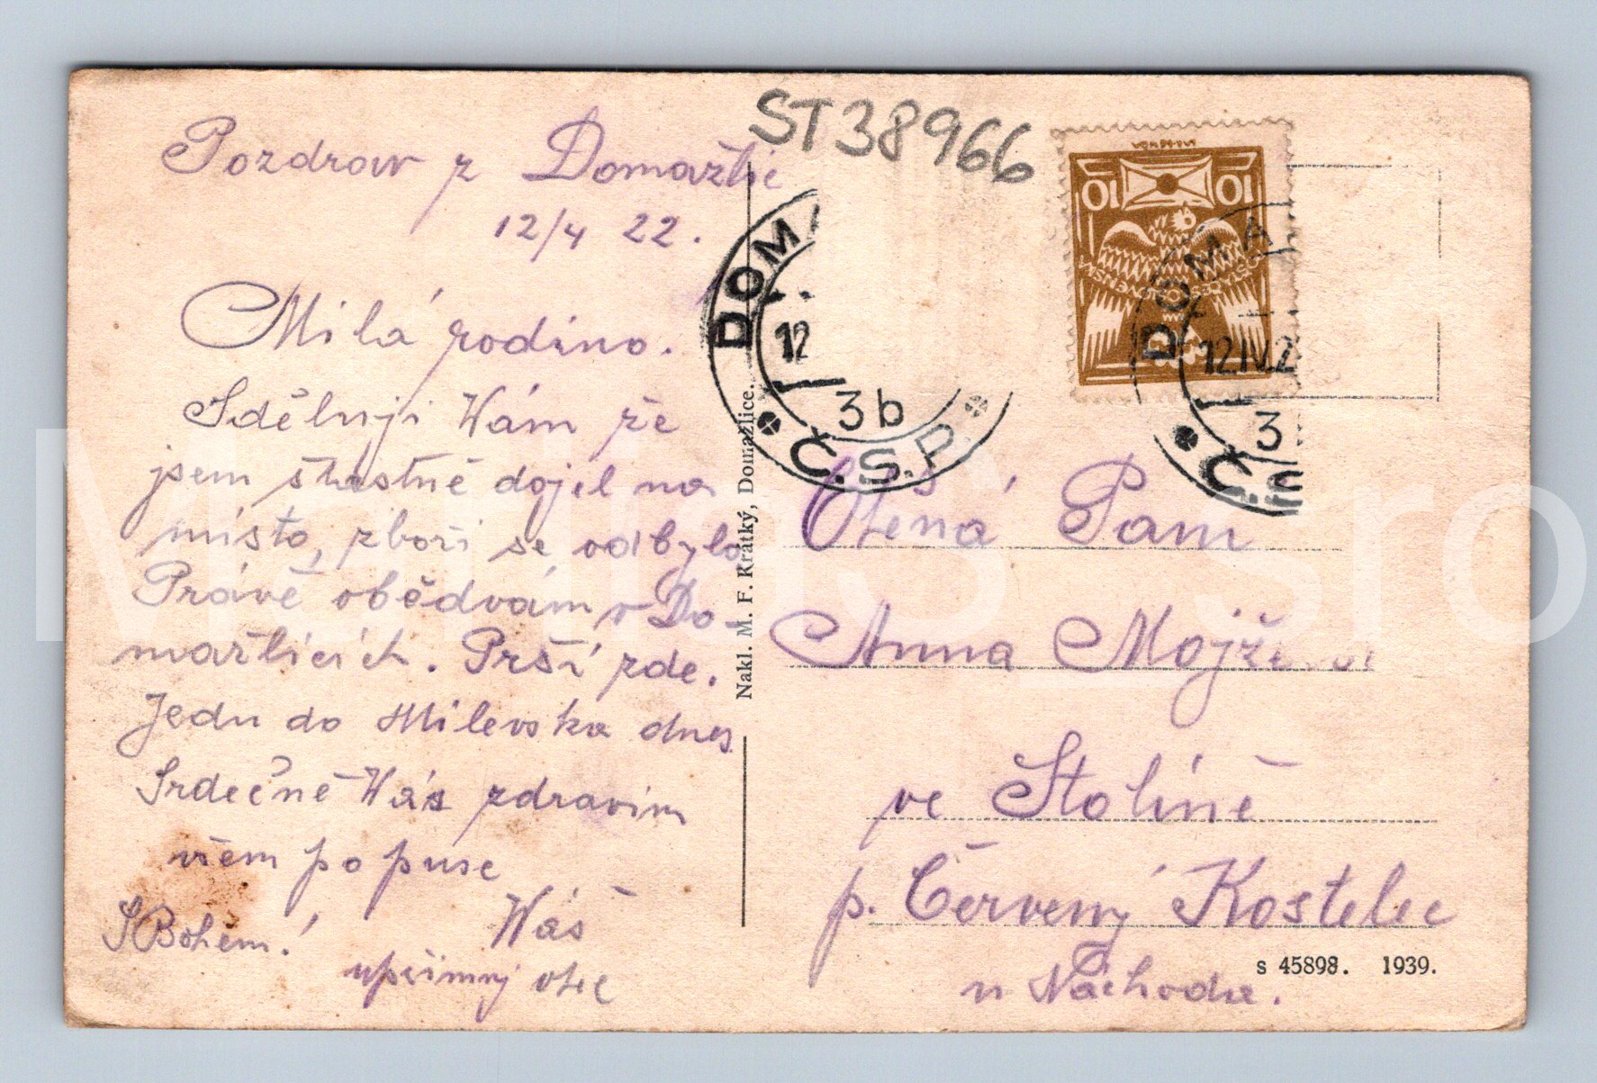 ST38966
Pozdrav z Domažlic
12/4 22.
Milá rodino.
Sděluji Vám že
jsem šťastně dojel na
místo, zboží se odbylo
Právě obědvám v Do-
mažlicích. Prší zde.
Jedu do Milevska dnes
Srdečně Vás zdravím
všem po puse
S Bohem! Váš
upřímný otec
Nakl. M. F. Krátký, Domažlice.
10 10
ČESKO-SLOVENSKÁ
DOMA
12
3b
Č.S.P.
DOMA
12.IV.2
3
Č.S
Ctěná Paní
Anna Mojží
ve Stolíně
p. Červený Kostelec
u Náchoda.
s 45898. 1939.